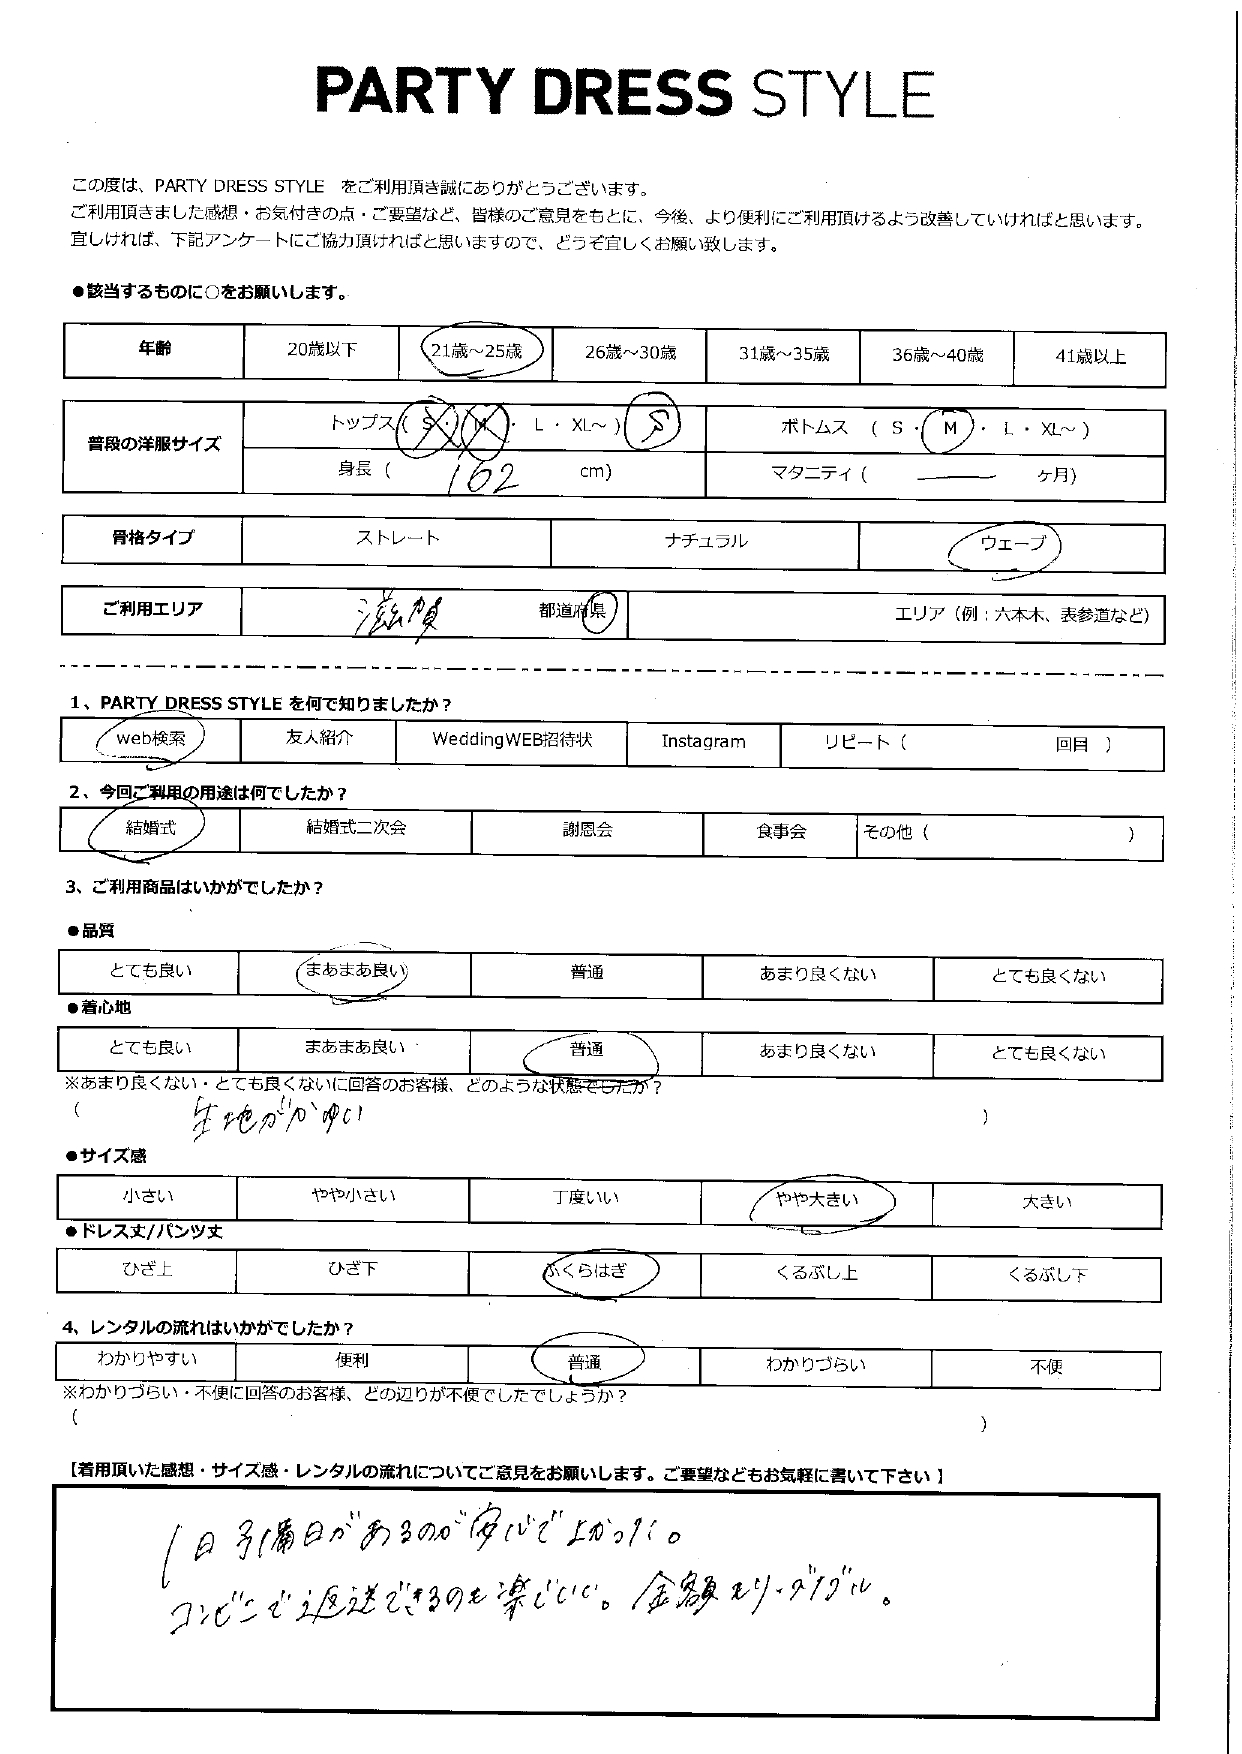 PARTY DRESS STYLE
この度は、PARTY DRESS STYLE をご利用頂き誠にありがとうございます。
ご利用頂きました感想・お気付きの点・ご要望など、皆様のご意見をもとに、今後、より便利にご利用頂けるよう改善していければと思います。
宜しければ、下記アンケートにご協力頂ければと思いますので、どうぞ宜しくお願い致します。
●該当するものに○をお願いします。
年齢 20歳以下 21歳～25歳 26歳～30歳 31歳～35歳 36歳～40歳 41歳以上
普段の洋服サイズ トップス( S ・ M ・ L ・ XL～ ) S ボトムス ( S ・ M ・ L ・ XL～ )
身長 ( 162 cm) マタニティ ( ― ヶ月)
骨格タイプ ストレート ナチュラル ウェーブ
ご利用エリア 滋賀 都道府県 エリア（例：六本木、表参道など）
1、PARTY DRESS STYLE を何で知りましたか？
web検索 友人紹介 WeddingWEB招待状 Instagram リピート（ 回目 ）
2、今回ご利用の用途は何でしたか？
結婚式 結婚式二次会 謝恩会 食事会 その他（ ）
3、ご利用商品はいかがでしたか？
●品質
とても良い まあまあ良い 普通 あまり良くない とても良くない
●着心地
とても良い まあまあ良い 普通 あまり良くない とても良くない
※あまり良くない・とても良くないに回答のお客様、どのような状態でしたか？
( 生地がかゆい )
●サイズ感
小さい やや小さい 丁度いい やや大きい 大きい
●ドレス丈/パンツ丈
ひざ上 ひざ下 ふくらはぎ くるぶし上 くるぶし下
4、レンタルの流れはいかがでしたか？
わかりやすい 便利 普通 わかりづらい 不便
※わかりづらい・不便に回答のお客様、どの辺りが不便でしたでしょうか？
( )
【着用頂いた感想・サイズ感・レンタルの流れについてご意見をお願いします。ご要望などもお気軽に書いて下さい】
1日予備日があるのが安心で よかった。
コンビニで返送できるのも楽でいい。金額もリーズナブル。